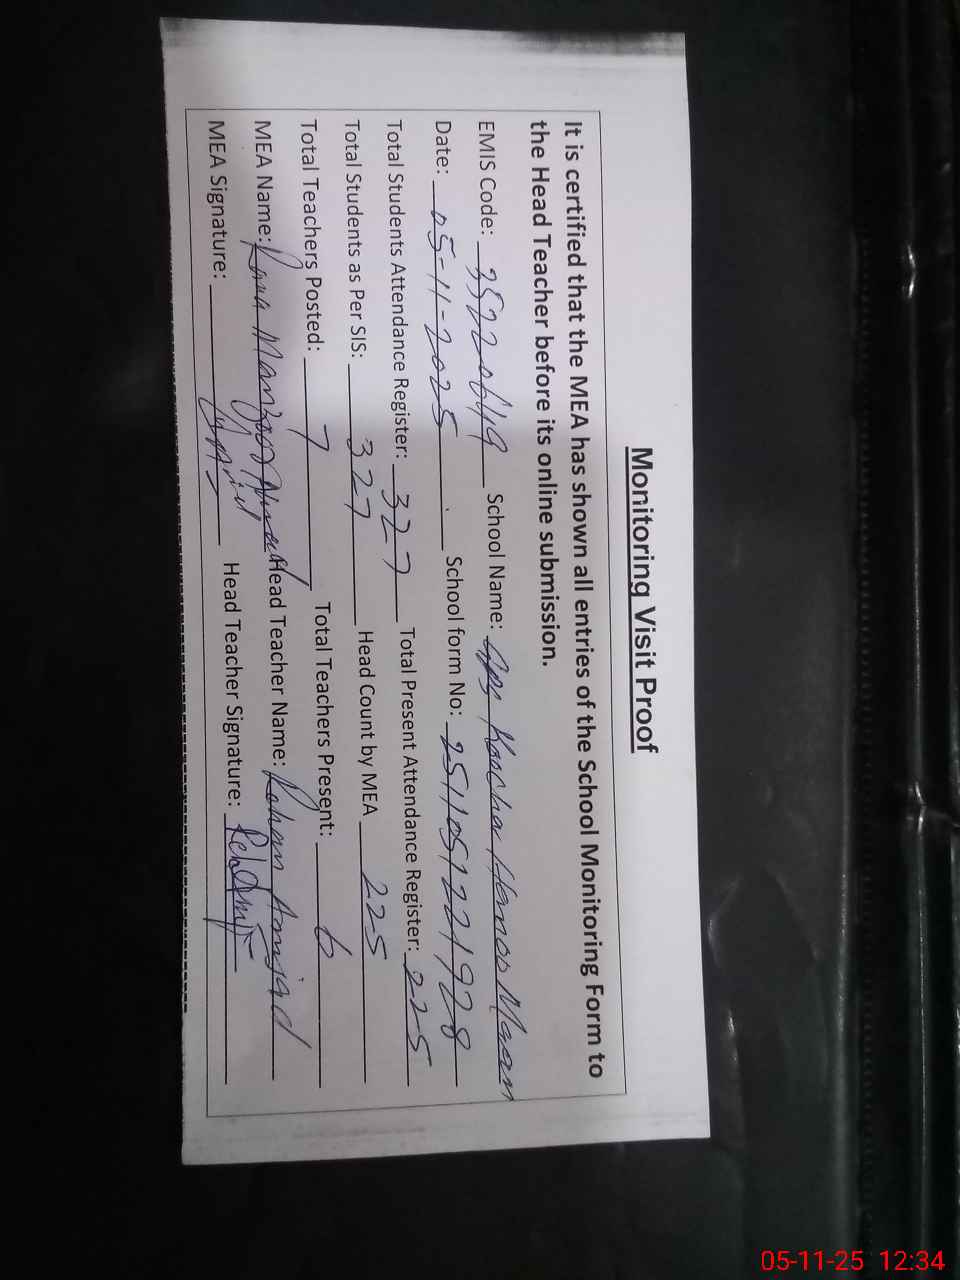 Monitoring Visit Proof
It is certified that the MEA has shown all entries of the School Monitoring Form to
the Head Teacher before its online submission.
EMIS Code: 35220649 School Name: GPS Kacha Man
Date: 05-11-2025 School form No: 2511051221928
Total Students Attendance Register: 327 Total Present Attendance Register: 225
Total Students as Per SIS: 327 Head Count by MEA 225
Total Teachers Posted: 7 Total Teachers Present: 6
MEA Name: Rana Manzoor Ahmad Head Teacher Name: Rehan Amjad
MEA Signature: Head Teacher Signature:
05-11-25 12:34